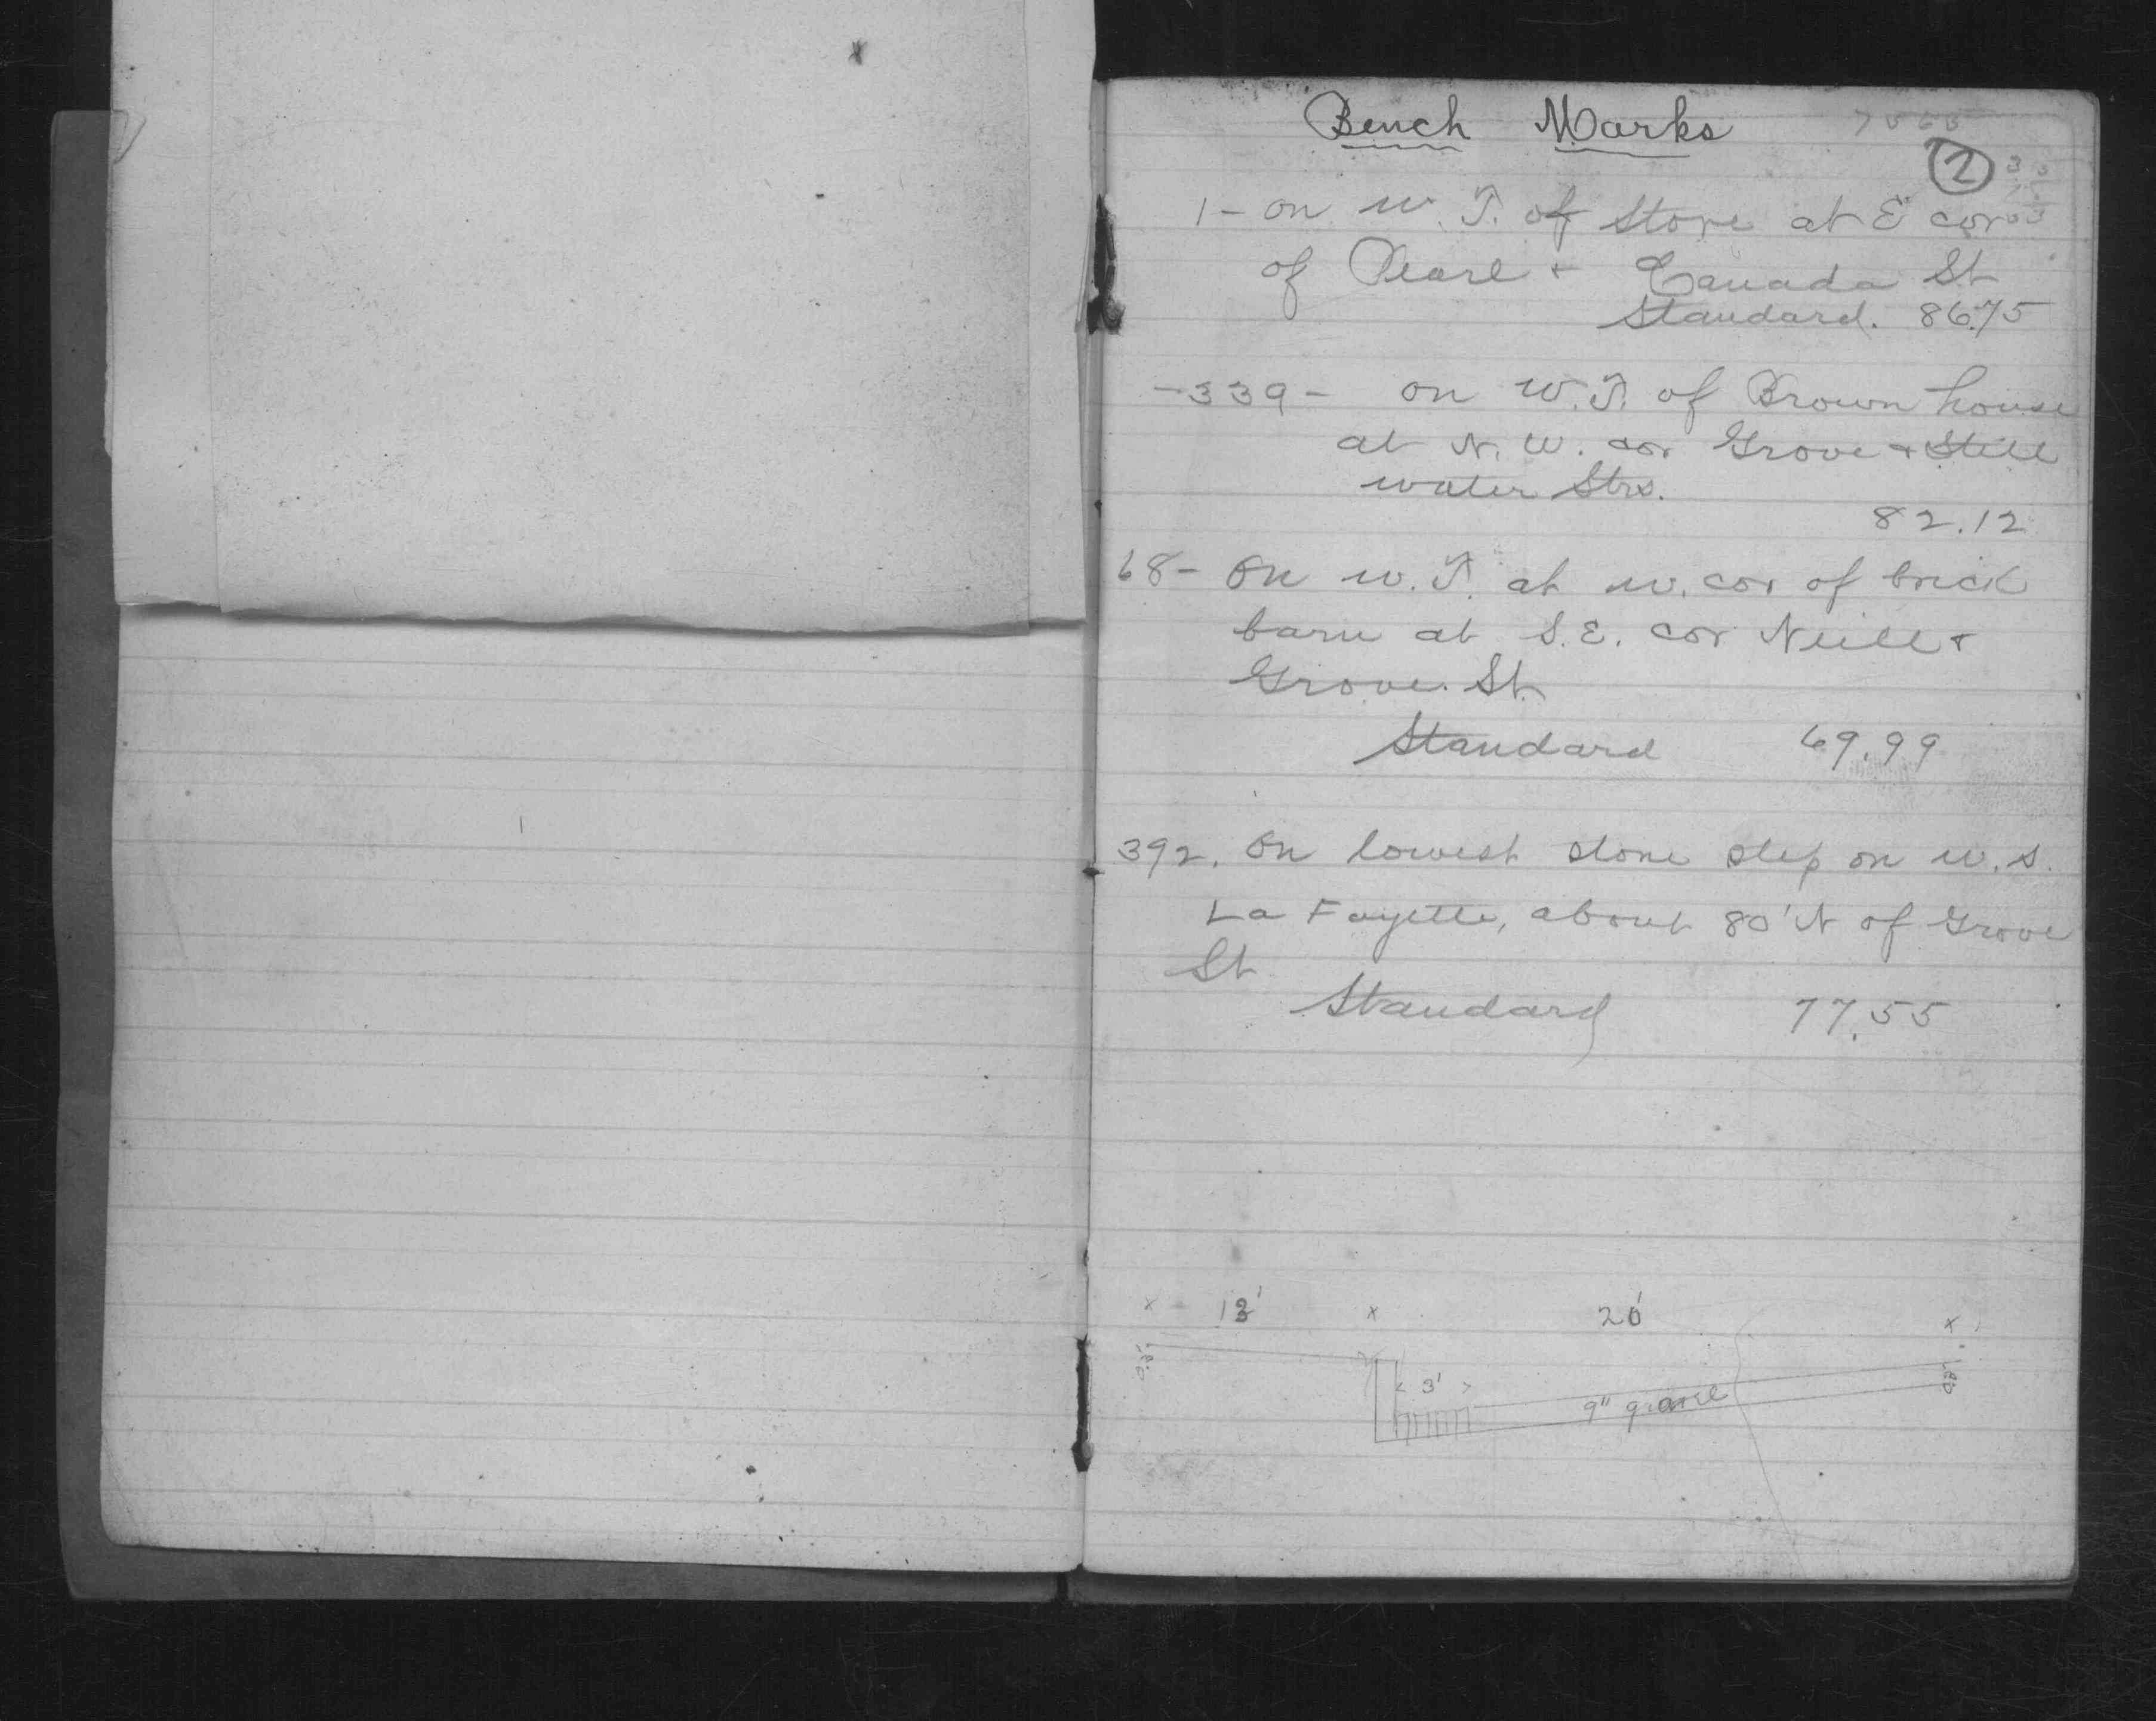 Bench Marks
2
1 - on W.T. of Store at E cor
of Pearl + Canada St
Standard. 86.75
- 339 - on W.T. of Brown house
at N.W. cor Grove + Still
water Strs.
82.12
68 - On W.T. at W. cor of brick
barn at S.E. cor Neill +
Grove St.
Standard 69.99
392. On lowest stone step on W.S.
La Fayette, about 80' N of Grove
St
Standard 77.55
x x 20' x
3'
9" gravel